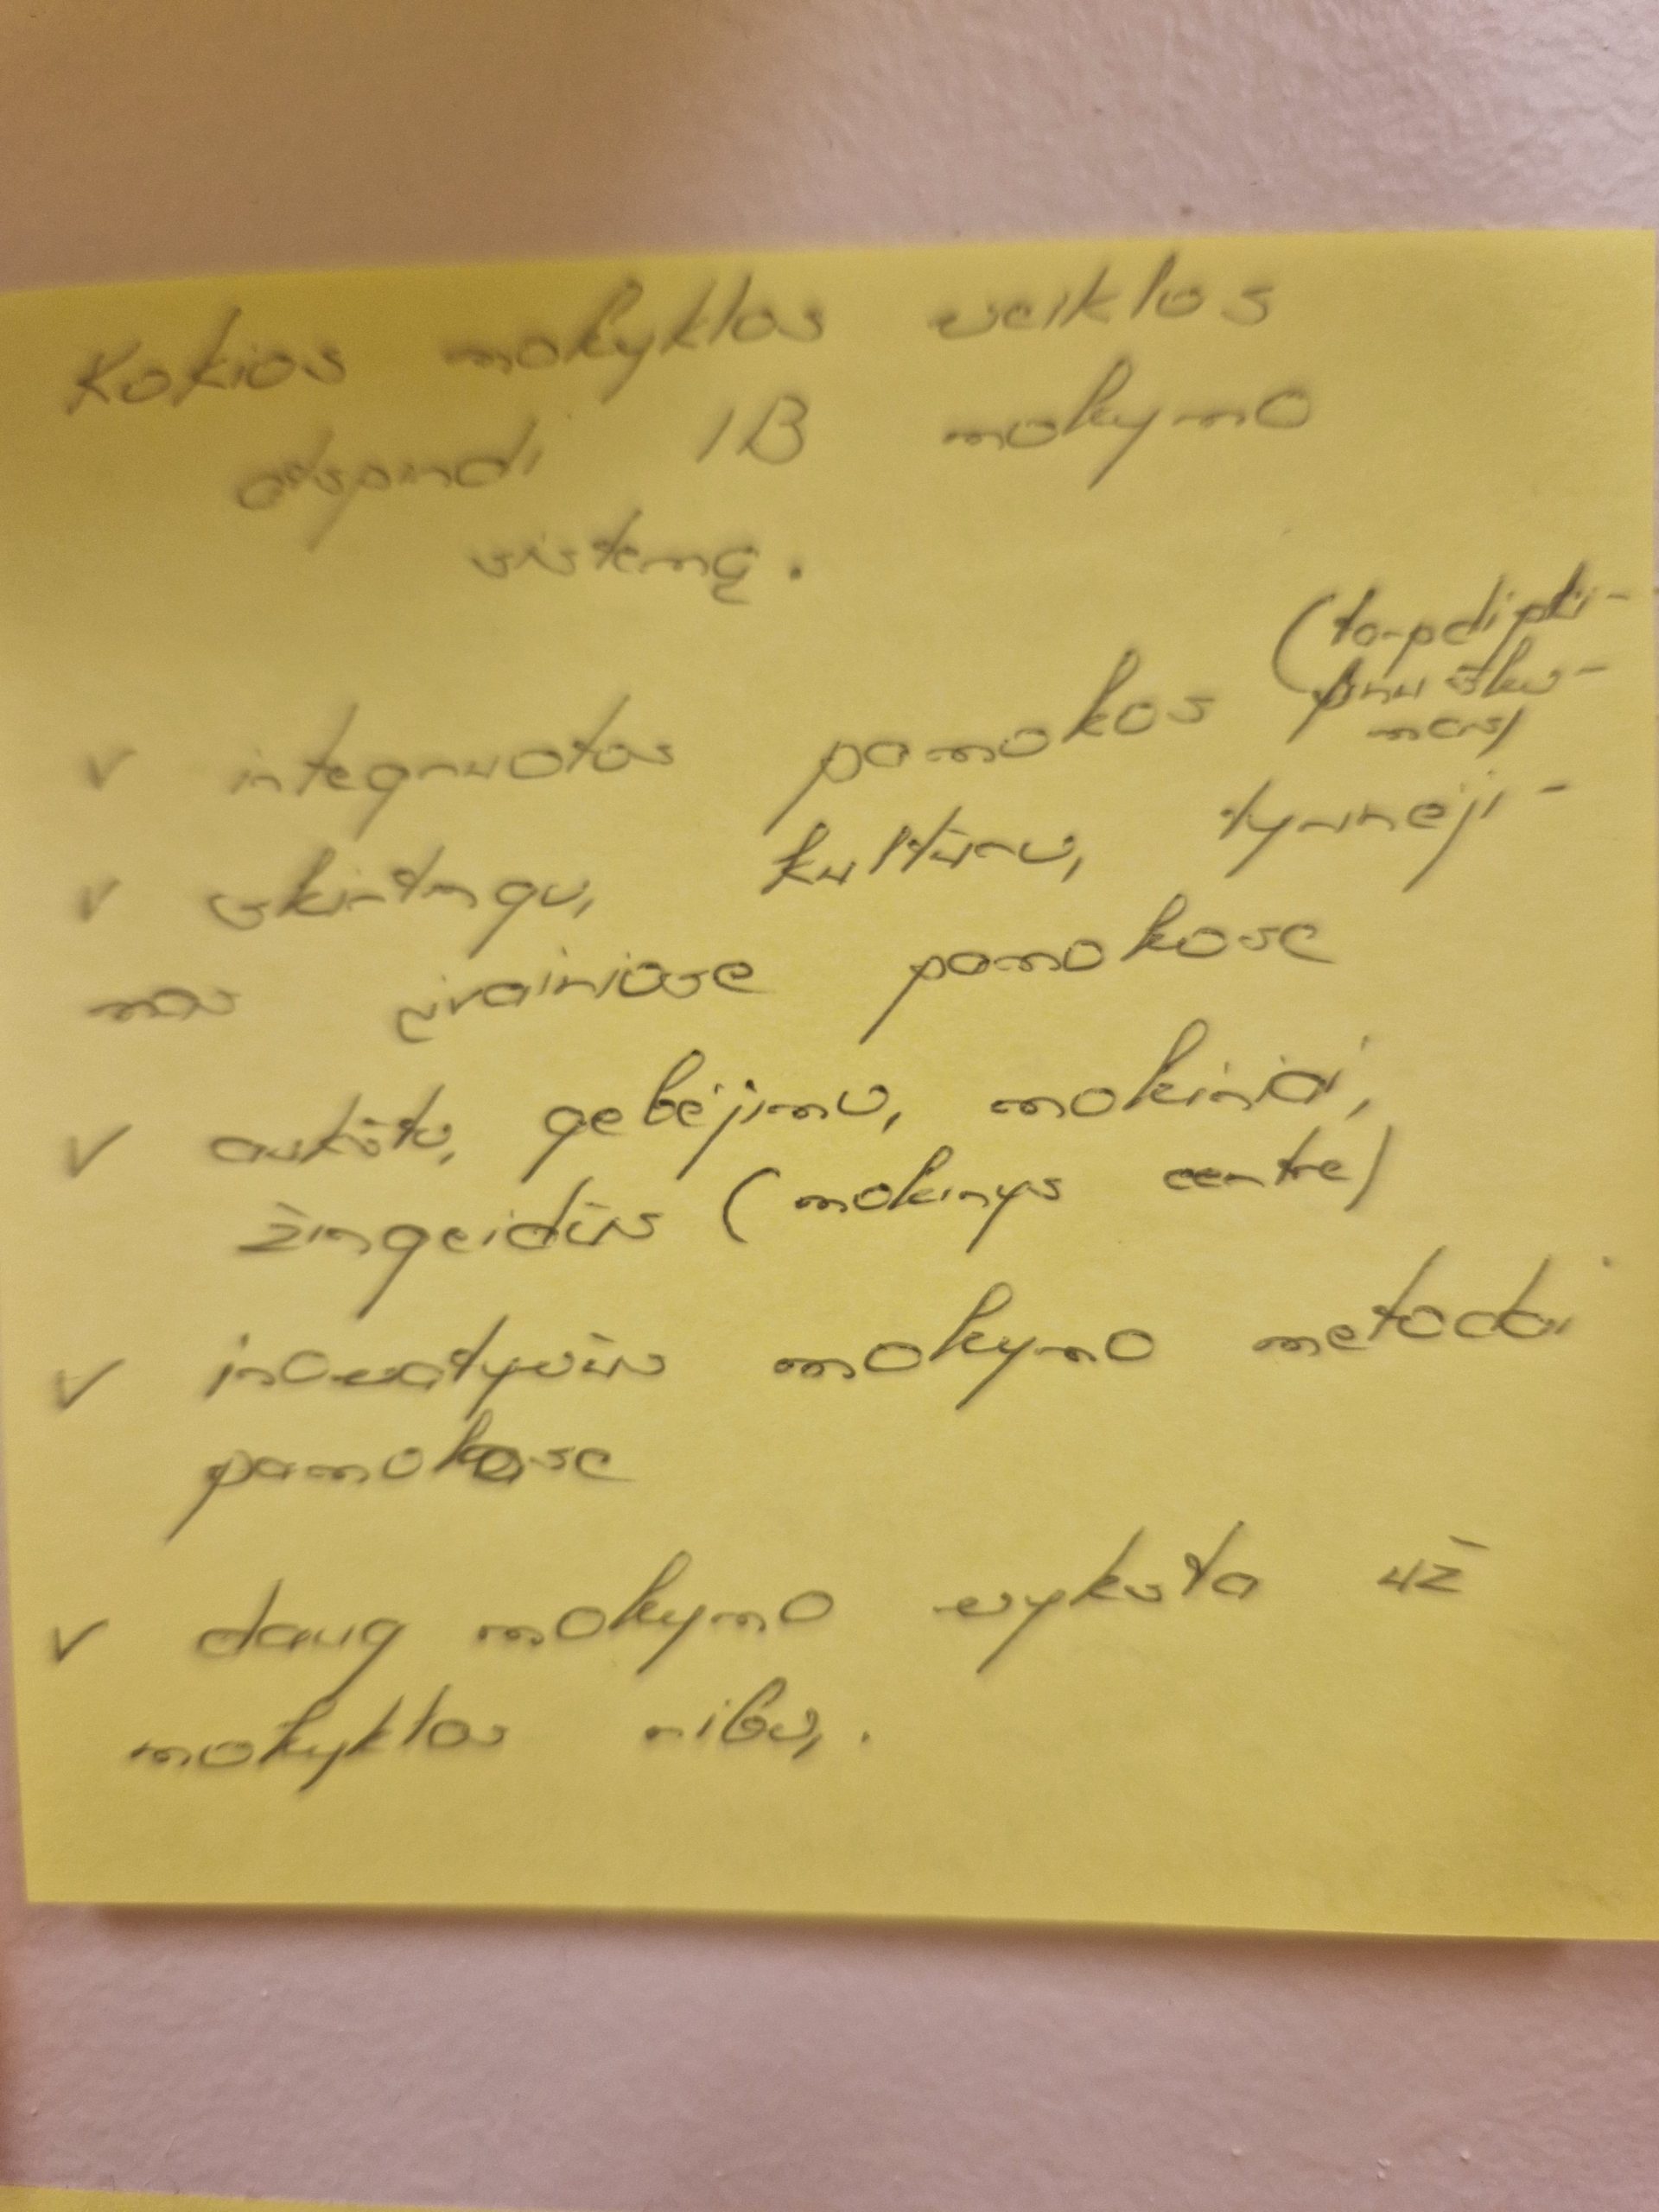 Kokios mokyklos veiklos
atspindi IB mokymo
sistemą.
✓ integruotos pamokos (tarpdipli-
niškumas)
✓ skirtingų kultūrų tyrinėji-
mas įvairiose pamokose
✓ aukštų gebėjimų mokiniai,
žingeidūs (mokinys centre)
✓ inovatyvūs mokymo metodai
pamokose
✓ daug mokymo vyksta už
mokyklos ribų.